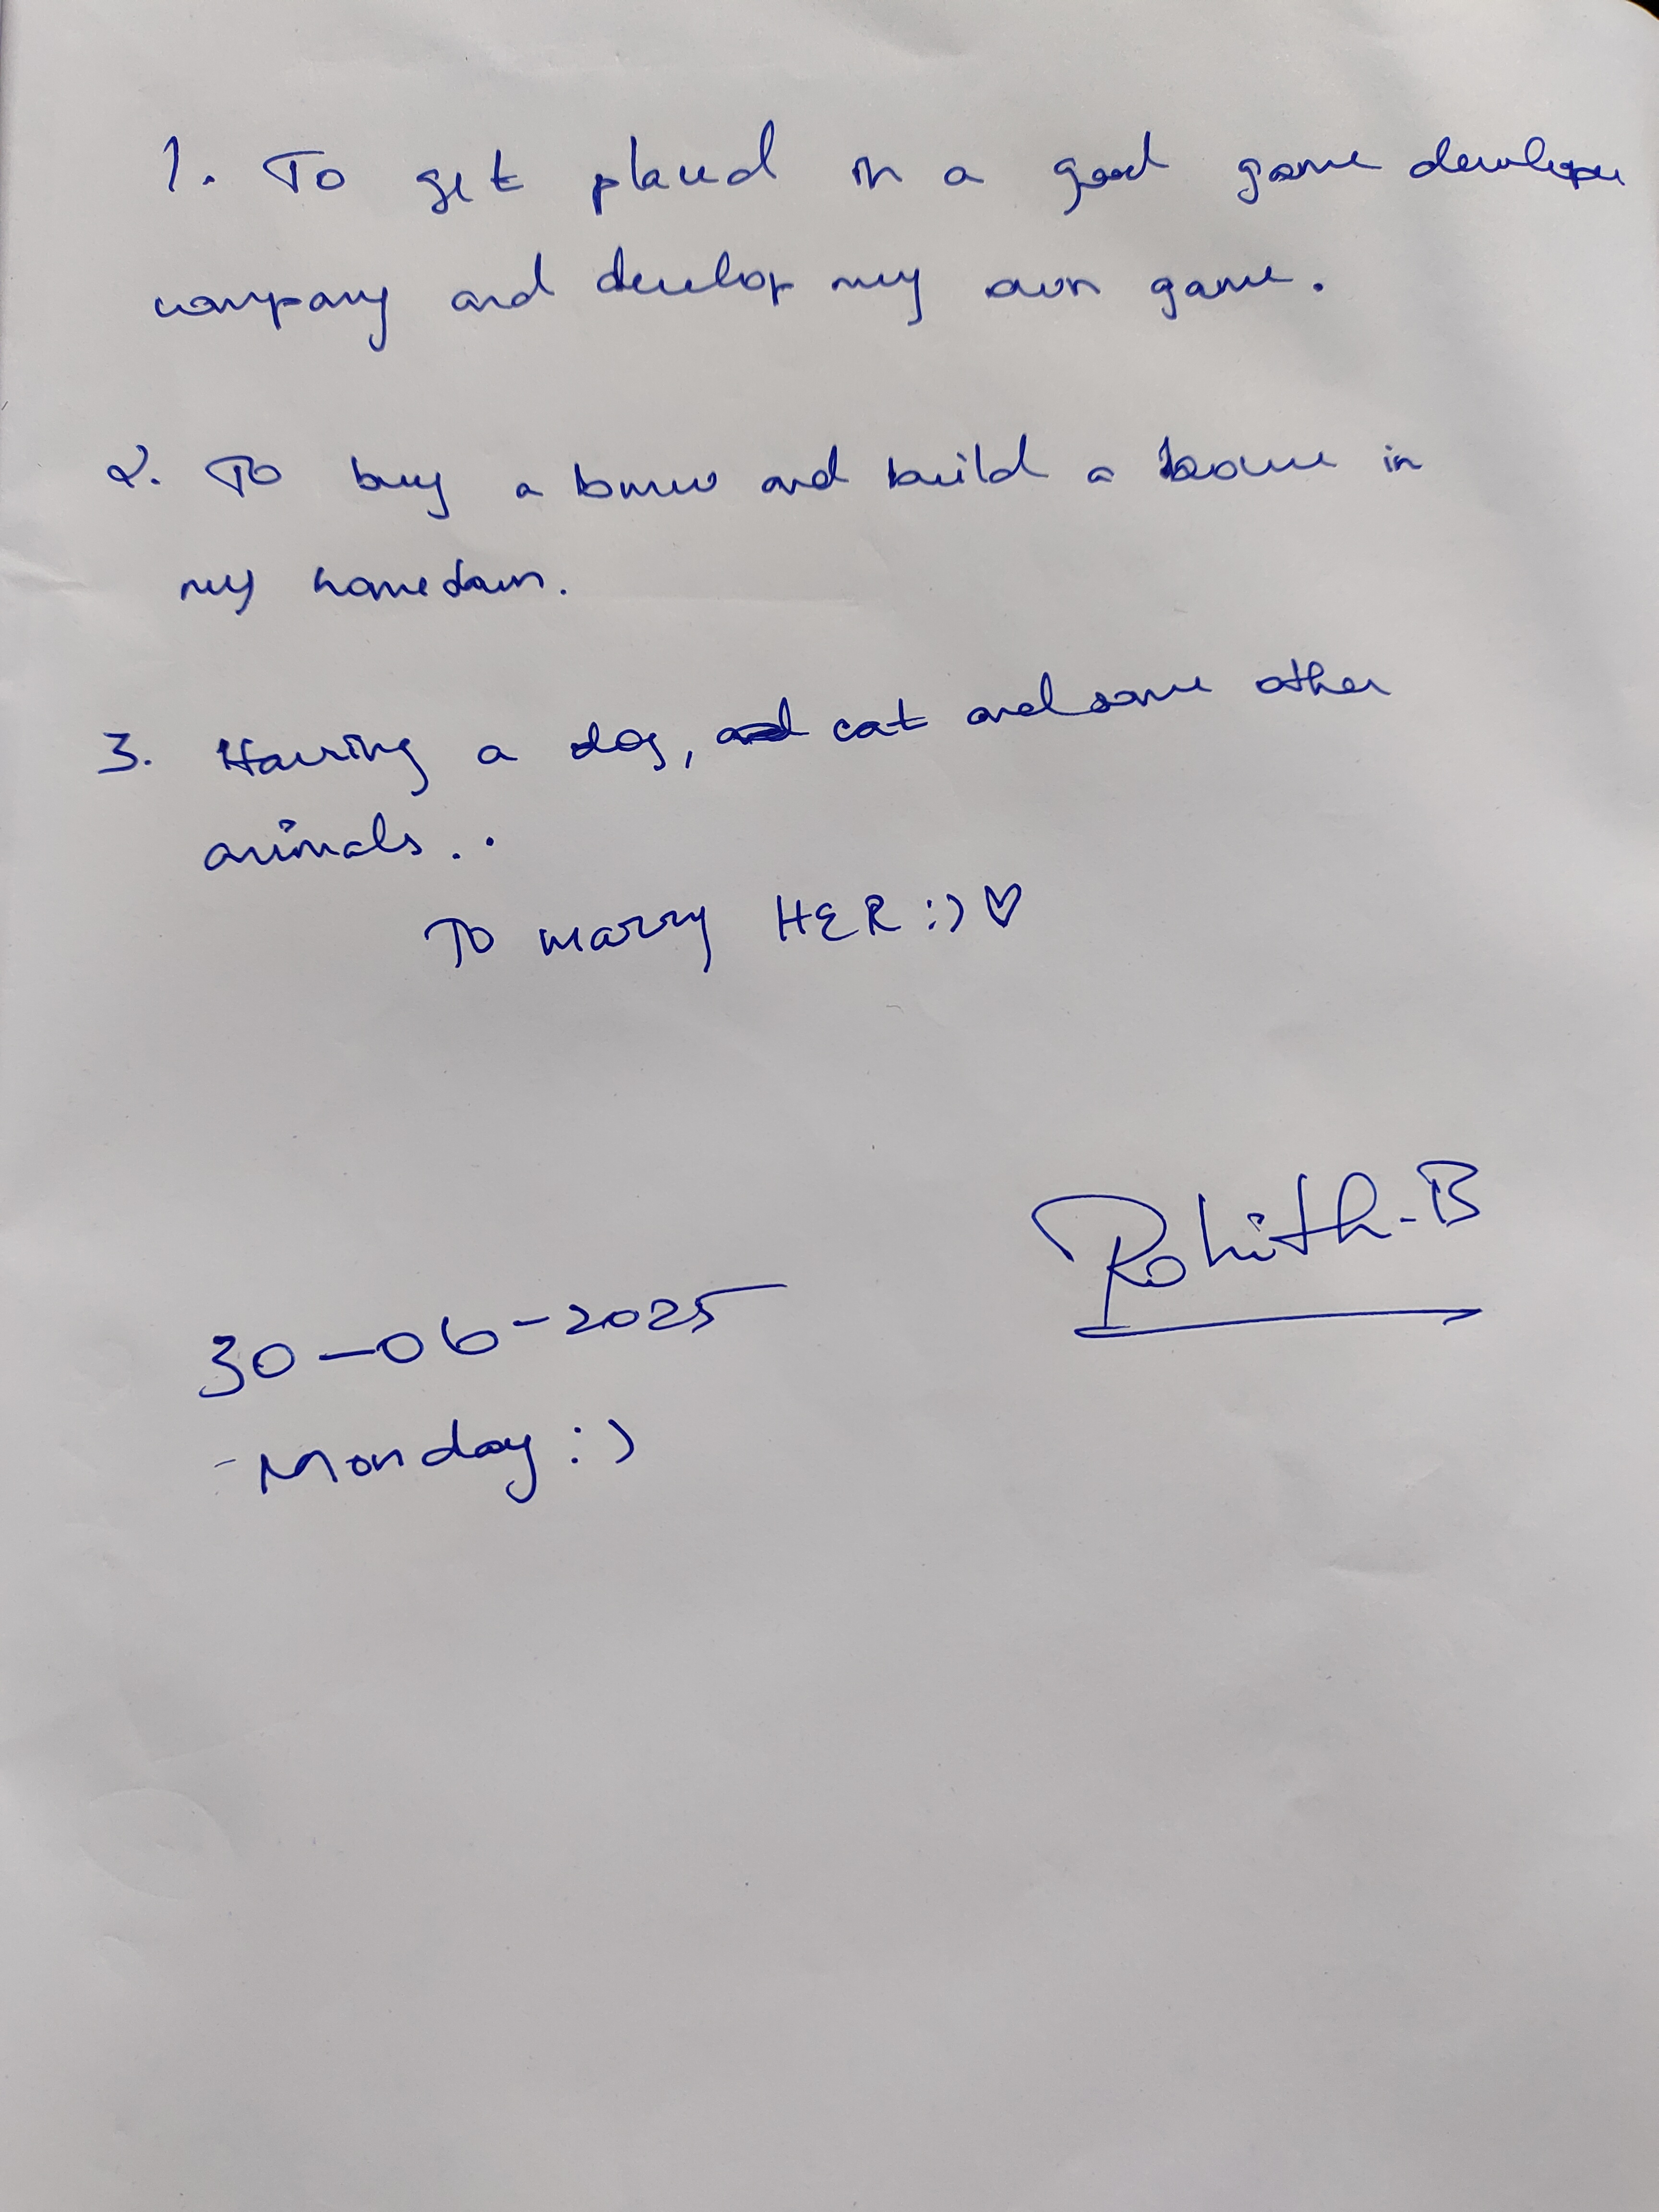 1. To get placed in a good game developer
company and develop my own game.
2. To buy a bmw and build a house in
my hometown.
3. Having a dog, cat and some other
animals..
To marry HER :) ♡
Rohith-B
30-06-2025
-Monday :)